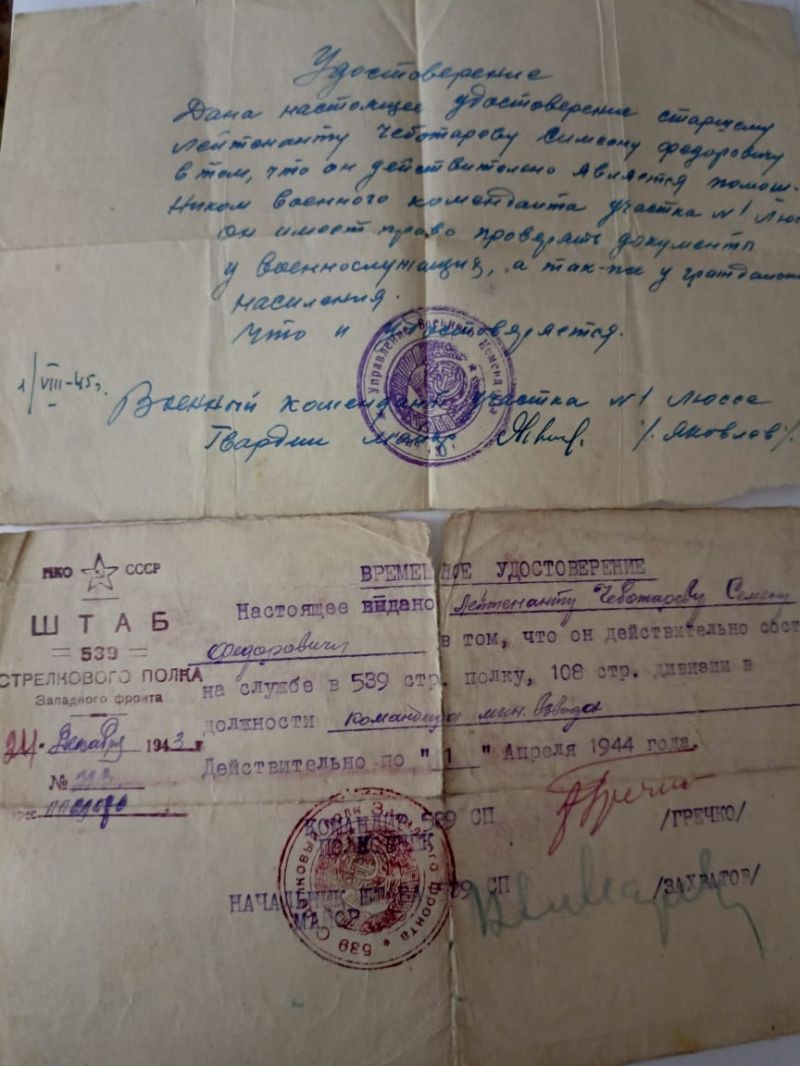 Удостоверение
Дана настоящее удостоверение старшему
Лейтенанту Чеботарову Симеону Федоровичу
в том, что он действително является помош-
ником военного коменданта участка №1 Люсс
Он имеет право проверять документы
у военнослужащих, а так-же у граждан
населения.
Что и удостоверяется.
1/VIII-45г.
Военный комендант участка №1 Люссе
Гвардии Майор /Яковлов/
Управление Военного Коменданта
НКО СССР
ШТАБ
539
СТРЕЛКОВОГО ПОЛКА
Западного фронта
24 Декабря 1943 г
№
ВРЕМЕННОЕ УДОСТОВЕРЕНИЕ
Настоящее выдано Лейтенанту Чеботареву Семену
Федоровичу в том, что он действительно сост
на службе в 539 стр. полку, 108 стр. дивизии в
должности Командира мин. взвода
Действительно по "1" Апреля 1944 года.
КОМАНДИР 539 СП
ПОЛКОВНИК /ГРЕЧКО/
НАЧАЛЬНИК ШТАБА 539 СП
МАЙОР /ЗАХВАТОВ/
539 Западного фронта